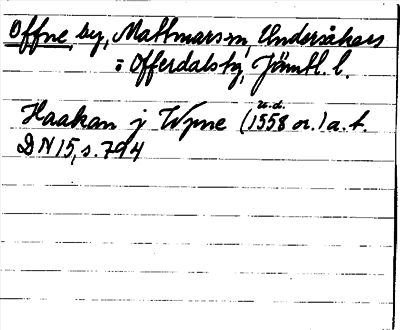 Offne, by, Mattmars sn, Undersåkers
o Offerdals tg, Jämtl. l.
u.d.
Haakan j Wpne (1558 or.) a. f.
DN 15, s. 794